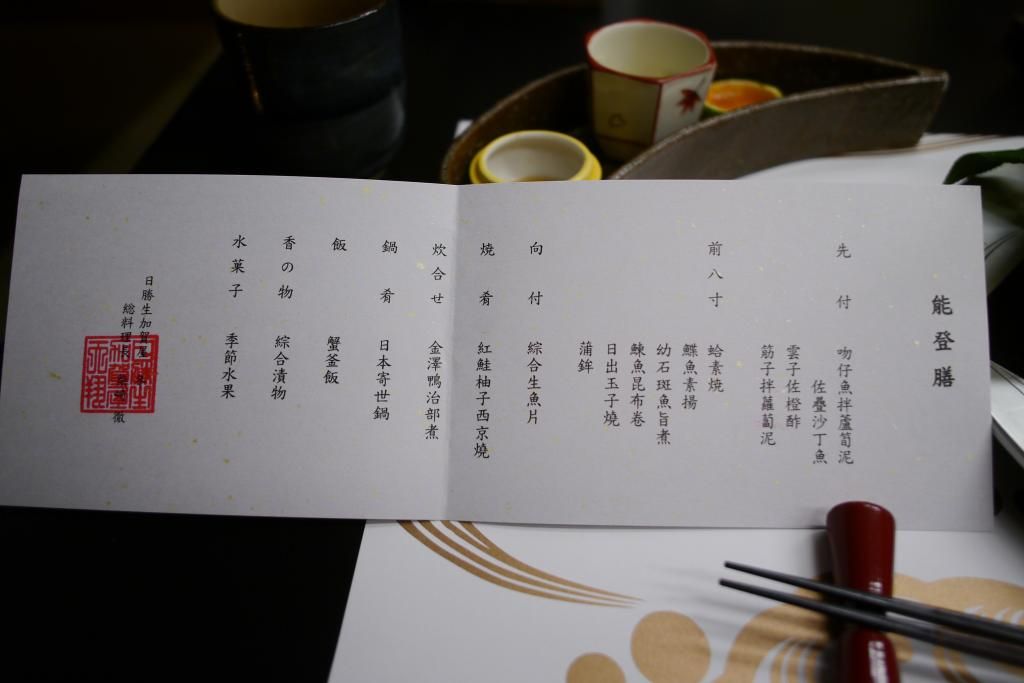 能登膳
先付
吻仔魚拌蘆筍泥
佐疊沙丁魚
雲子佐橙酢
筋子拌蘿蔔泥
前八寸
蛤素燒
鰈魚素揚
幼石斑魚旨煮
鰊魚昆布卷
日出玉子燒
蒲鉾
向付
綜合生魚片
燒肴
紅鮭柚子西京燒
炊合せ
金澤鴨治部煮
鍋肴
日本寄世鍋
飯
蟹釜飯
香の物
綜合漬物
水菓子
季節水果
日勝生加賀屋
総料理長